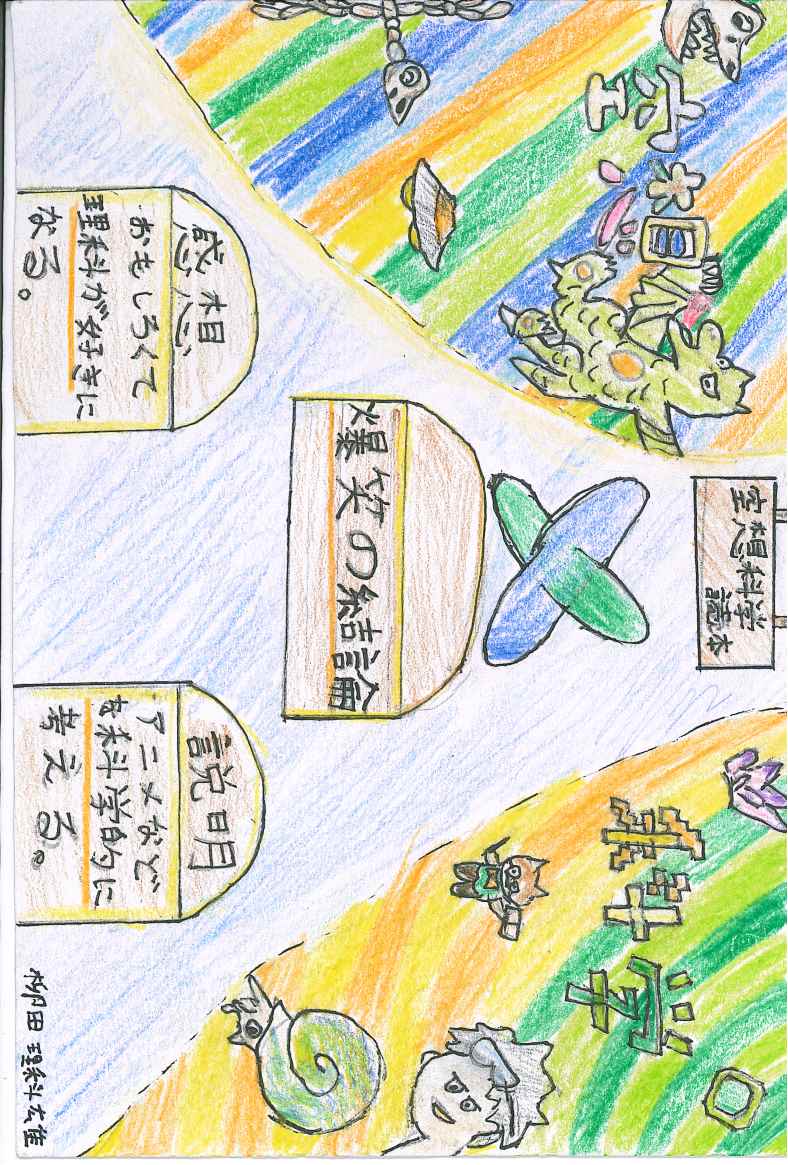 空想科学
空想科学
読本
爆笑の結論
感想
おもしろくて
理科が好きに
なる。
説明
アニメなど
を科学的に
考える。
柳田 理科